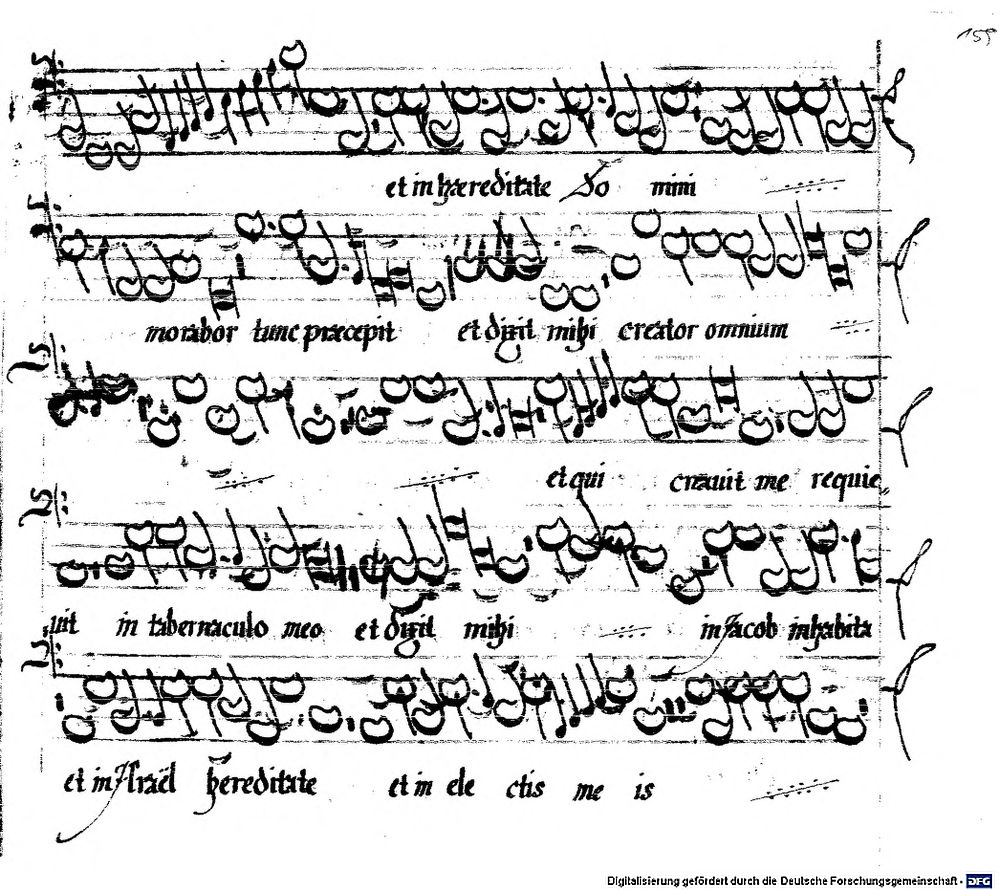 159
et in hæreditate Do mini
morabor tunc præcepit et dixit mihi creator omnium
et qui creauit me requie„
„uit in tabernaculo meo et dixit mihi in Jacob inhabita
et in Jsraël hereditate et in ele ctis me is
Digitalisierung gefördert durch die Deutsche Forschungsgemeinschaft - DFG